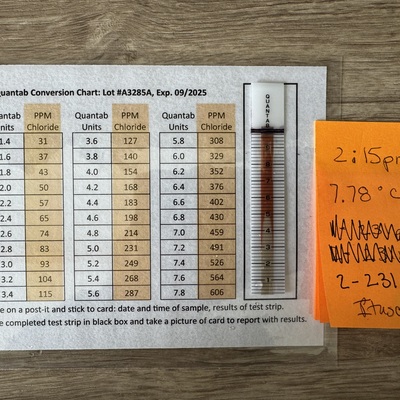 uantab Conversion Chart: Lot #A3285A, Exp. 09/2025
antab Units PPM Chloride Quantab Units PPM Chloride Quantab Units PPM Chloride
1.4 31 3.6 127 5.8 308
1.6 37 3.8 140 6.0 329
1.8 43 4.0 154 6.2 352
2.0 50 4.2 168 6.4 376
2.2 57 4.4 183 6.6 402
2.4 65 4.6 198 6.8 430
2.6 74 4.8 214 7.0 459
2.8 83 5.0 231 7.2 491
3.0 93 5.2 249 7.4 526
3.2 104 5.4 268 7.6 564
3.4 115 5.6 287 7.8 606
e on a post-it and stick to card: date and time of sample, results of test strip.
e completed test strip in black box and take a picture of card to report with results.
QUANTAB
2:15pm
7.78 °C
2-231